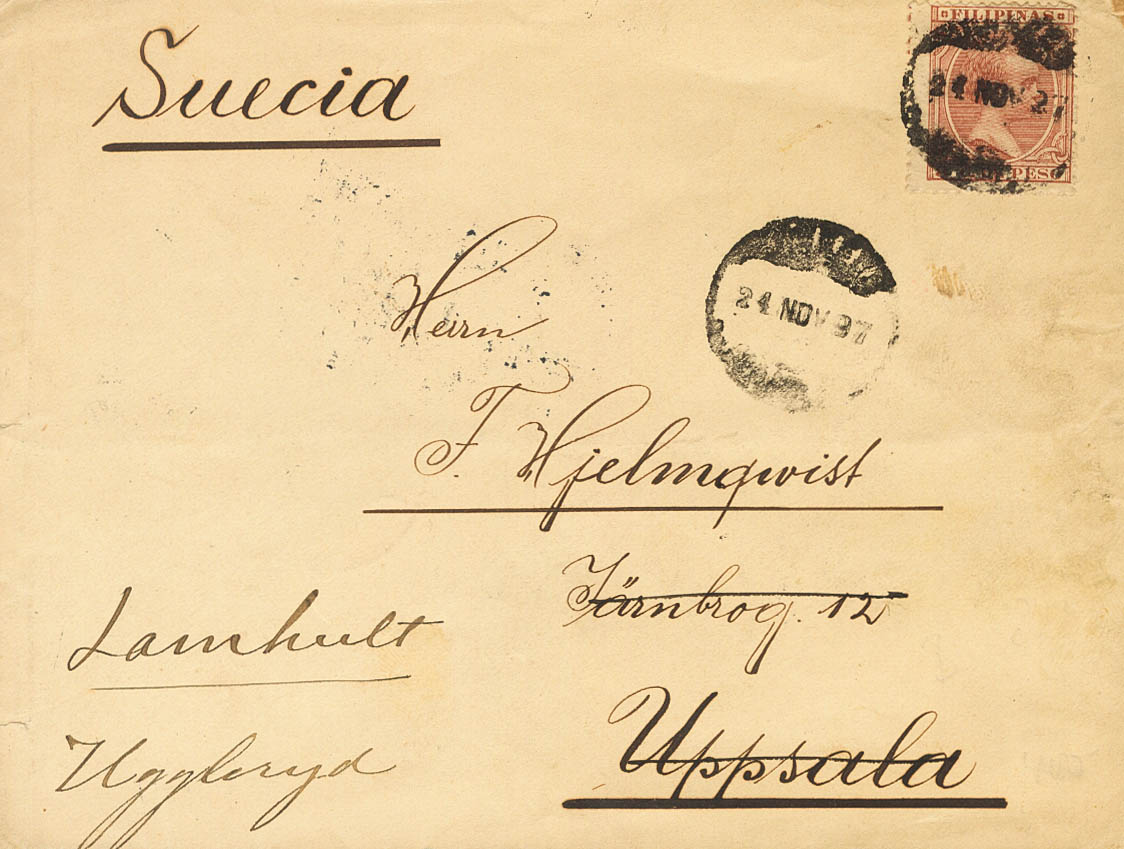 FILIPINAS
24 NOV 97
PESO
Suecia
24 NOV 97
Herrn
F. Hjelmqwist
Järnbrog. 12
Uppsala
Lamhult
Uggleryd